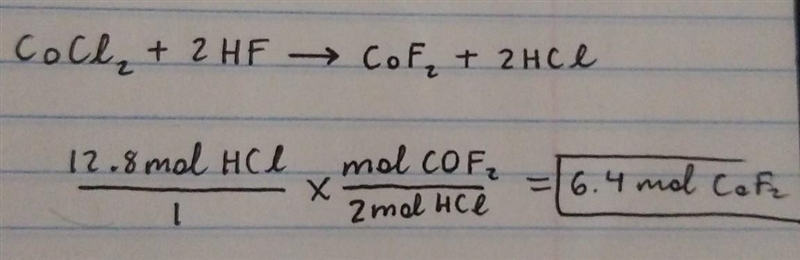 CoCl₂ + 2HF → CoF₂ + 2HCl
12.8 mol HCl / 1 × mol COF₂ / 2 mol HCl = 6.4 mol CoF₂